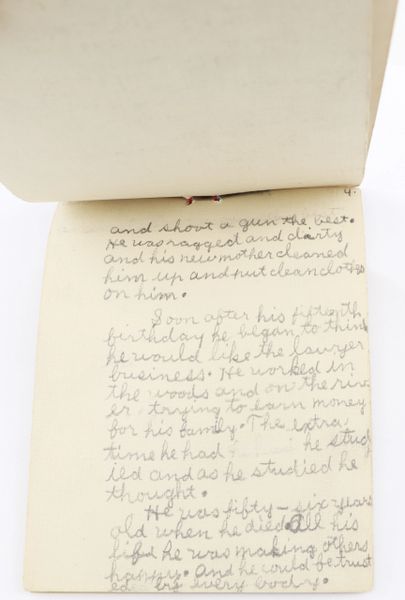 4.
and shoot a gun the best.
He was ragged and dirty
and his new mother cleaned
him up and put clean clothes
on him.
Soon after his fifteenth
birthday he began to think
he would like the lawyer
business. He worked in
the woods and on the riv-
er, trying to earn money
for his family. The extra
time he had he stud-
ied and as he studied he
thought.
He was fifty-six years
old when he died. All his
life he was making others
happy. And he could be trust
ed by every body.